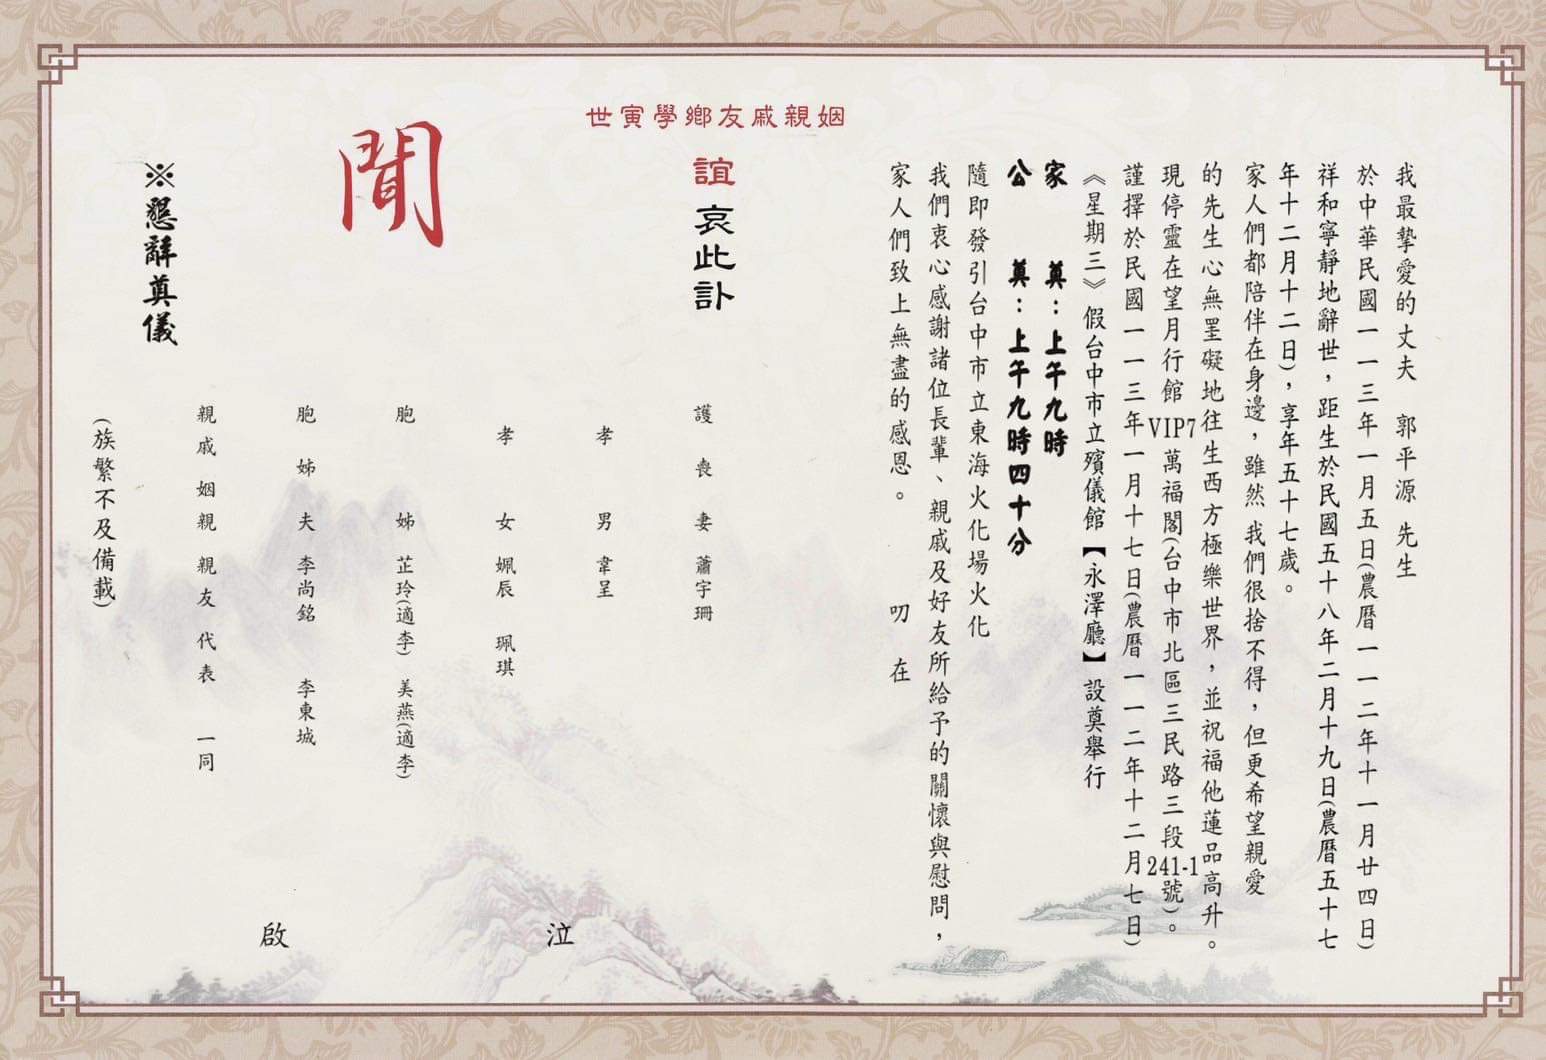 我最摯愛的丈夫 郭平源 先生
於中華民國一一三年一月五日(農曆一一二年十一月廿四日)
祥和寧靜地辭世，距生於民國五十八年二月十九日(農曆五十七
年十二月十二日)，享年五十七歲。
家人們都陪伴在身邊，雖然 我們很捨不得，但更希望親愛
的先生心無罣礙地往生西方極樂世界，並祝福他蓮品高升。
現停靈在望月行館VIP7萬福閣(台中市北區三民路三段241-1號)。
謹擇於民國一一三年一月十七日(農曆一一二年十二月七日)
《星期三》假台中市立殯儀館【永澤廳】設奠舉行
家 奠：上午九時
公 奠：上午九時四十分
隨即發引台中市立東海火化場火化
我們衷心感謝諸位長輩、親戚及好友所給予的關懷與慰問，
家人們致上無盡的感恩。 叨在
世寅學鄉友戚親姻
誼哀此訃
聞
護喪妻 蕭宇珊
孝男 韋呈
孝女 姵辰 珮琪
胞姊 芷玲(適李) 美燕(適李)
胞姊夫 李尚銘 李東城
親戚姻親親友代表 一同
泣
啟
※懇辭奠儀
(族繁不及備載)